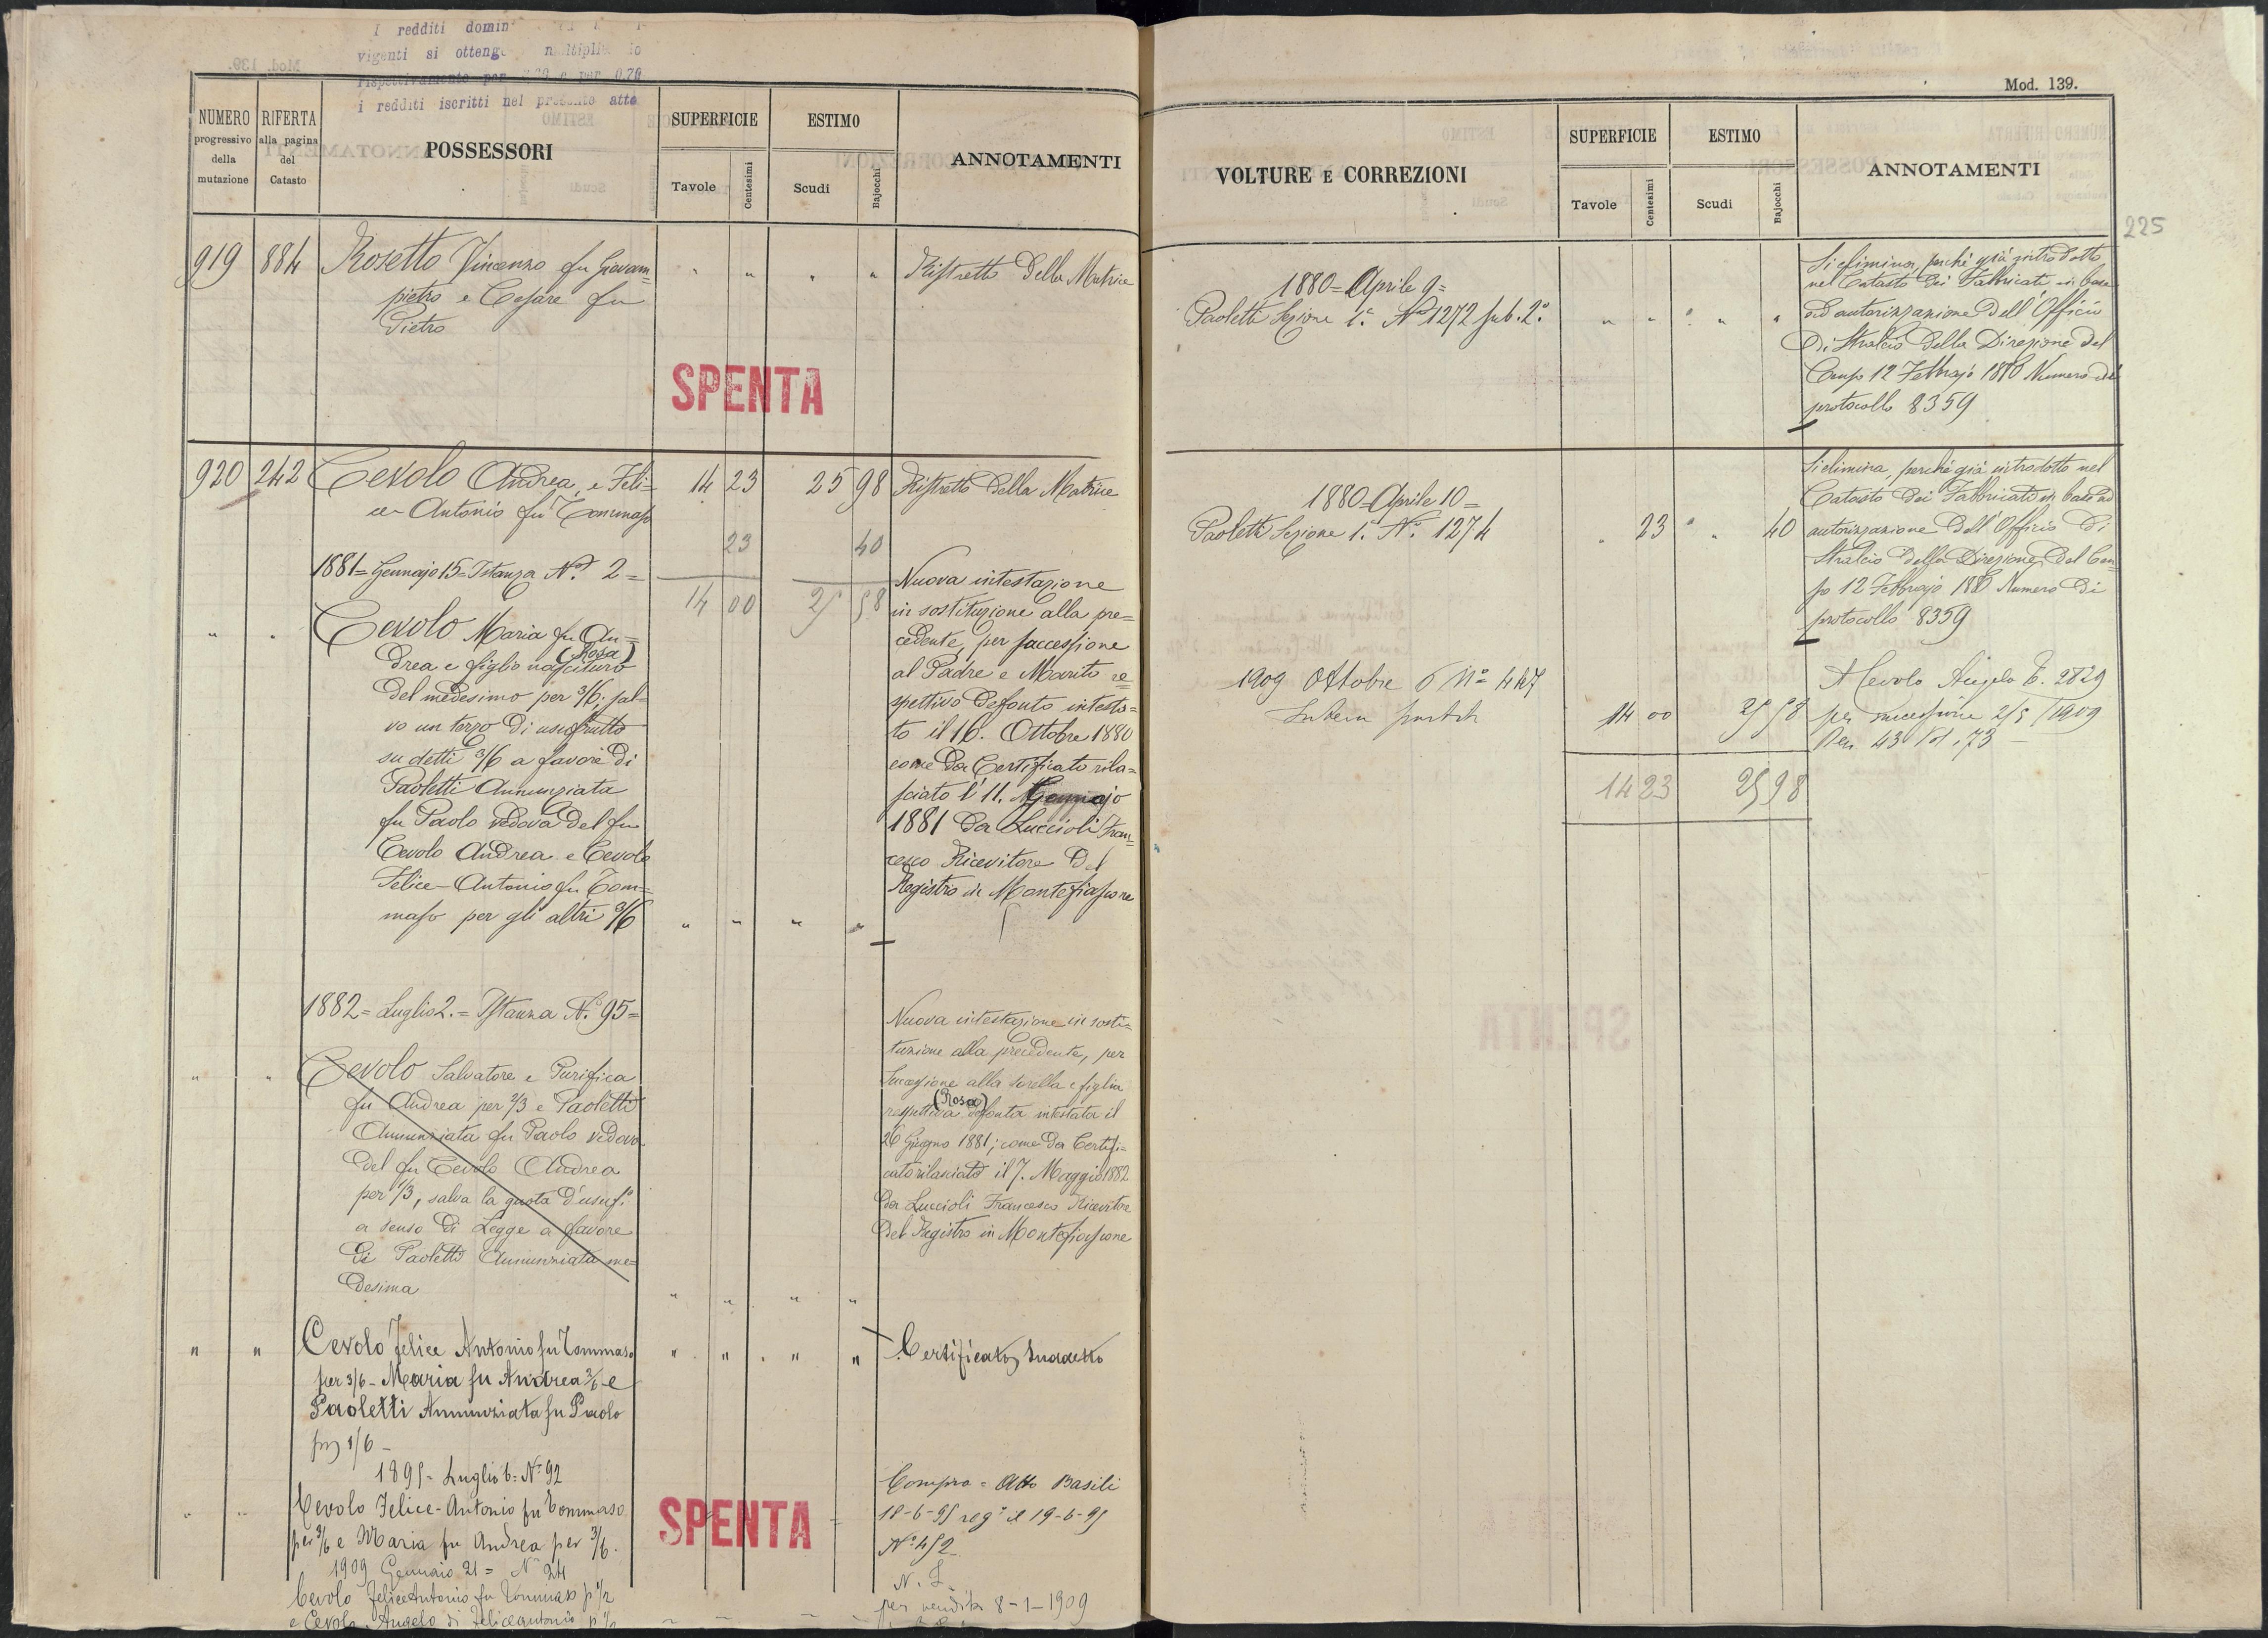 I redditi domin
vigenti si ottengo moltiplic
rispettivamente per e per 0,70
i redditi iscritti nel presente atto
Mod. 139.
NUMERO
progressivo
della
mutazione
RIFERTA
alla pagina
del
Catasto
POSSESSORI
SUPERFICIE
Tavole
Centesimi
ESTIMO
Scudi
Bajocchi
ANNOTAMENTI
919 884 Rosetto Vincenzo fu Giovam=
pietro e Cesare fu
Pietro
" " " "
Ristretto della Matrice
SPENTA
920 242 Cevolo Andrea, e Feli=
ce Antonio fu Tommaso
14 23 25 98 Ristretto della Matrice
23 40
14 00 25 58
1881=Gennajo 15=Istanza N.º 2=
" " Cevolo Maria fu An=
drea e figlio nascituro
(Rosa)
del medesimo per 3/6, sal=
vo un terzo di usufrutto
su detti 3/6 a favore di
Paoletti Annunziata
fu Paolo vedova del fu
Cevolo Andrea e Cevolo
Felice-Antonio fu Tom=
maso per gli altri 3/6
" " " "
Nuova intestazione
in sostituzione alla pre=
cedente, per successione
al Padre e Marito re=
spettivo defonto intesta=
to il 16. Ottobre 1880
come da Certificato rila=
sciato l'11. Gennajo
1881 da Luccioli Fran=
cesco Ricevitore del
Registro in Montefiascone
1882=Luglio 2.=Istanza N.º 95=
" " Cevolo Salvatore e Purifica
fu Andrea per 2/3 e Paoletti
Annunziata fu Paolo vedova
del fu Cevolo Andrea
per 1/3, salva la quota d'usuf.º
a senso di Legge a favore
di Paoletti Annunziata me=
desima
" " " "
Nuova intestazione in sosti=
tuzione alla precedente, per
Successione alla sorella e figlia
(Rosa)
respettiva defonta intestata il
26 Giugno 1881; come da Certifi=
cato rilasciato il 7. Maggio 1882
da Luccioli Francesco Ricevitore
del Registro in Montefiascone
" " Cevolo Felice Antonio fu Tommaso
per 3/6 - Maria fu Andrea 2/6 e
Paoletti Annunziata fu Paolo
per 1/6 -
" " " "
Certificato suddetto
1895- Luglio 6= Nº 92
" " Cevolo Felice-Antonio fu Tommaso
per 3/6 e Maria fu Andrea per 3/6.
SPENTA
Compra = Atto Basili
18-6-95 reg.º il 19-6-95
Nº 452
1909 Gennaio 21= Nº 24
Cevolo Felice Antonio fu Tommaso p 1/2
e Cevolo Angelo di Felice antonio p 1/2
per vendita 8-1-1909
Mod. 139.
225
VOLTURE E CORREZIONI
SUPERFICIE
Tavole
Centesimi
ESTIMO
Scudi
Bajocchi
ANNOTAMENTI
1880=Aprile 9=
Paoletti Sezione 1.ª Nº 1272 sub. 2.º
" " " "
Si elimina, perchè già introdotto
nel Catasto dei Fabbricati in base
ad autorizzazione dell'Officio
di Stralcio della Direzione del
Censo 12 Febbrajo 1880 Numero di
protocollo 8359
1880=Aprile 10=
Paoletti Sezione 1.ª Nº 1274
" 23 " 40
Si elimina, perchè già introdotto nel
Catasto dei Fabbricati in base ad
autorizzazione dell'Officio di
Stralcio della Direzione del Cen=
so 12 Febbrajo 1880 Numero di
protocollo 8359
1909 Ottobre 6 Nº 447
Intera partita
14 00 25 58
A Cevolo Angelo P. 2829
per successione 2/5 1909
Den 43 Vol. 73
14 23 25 98